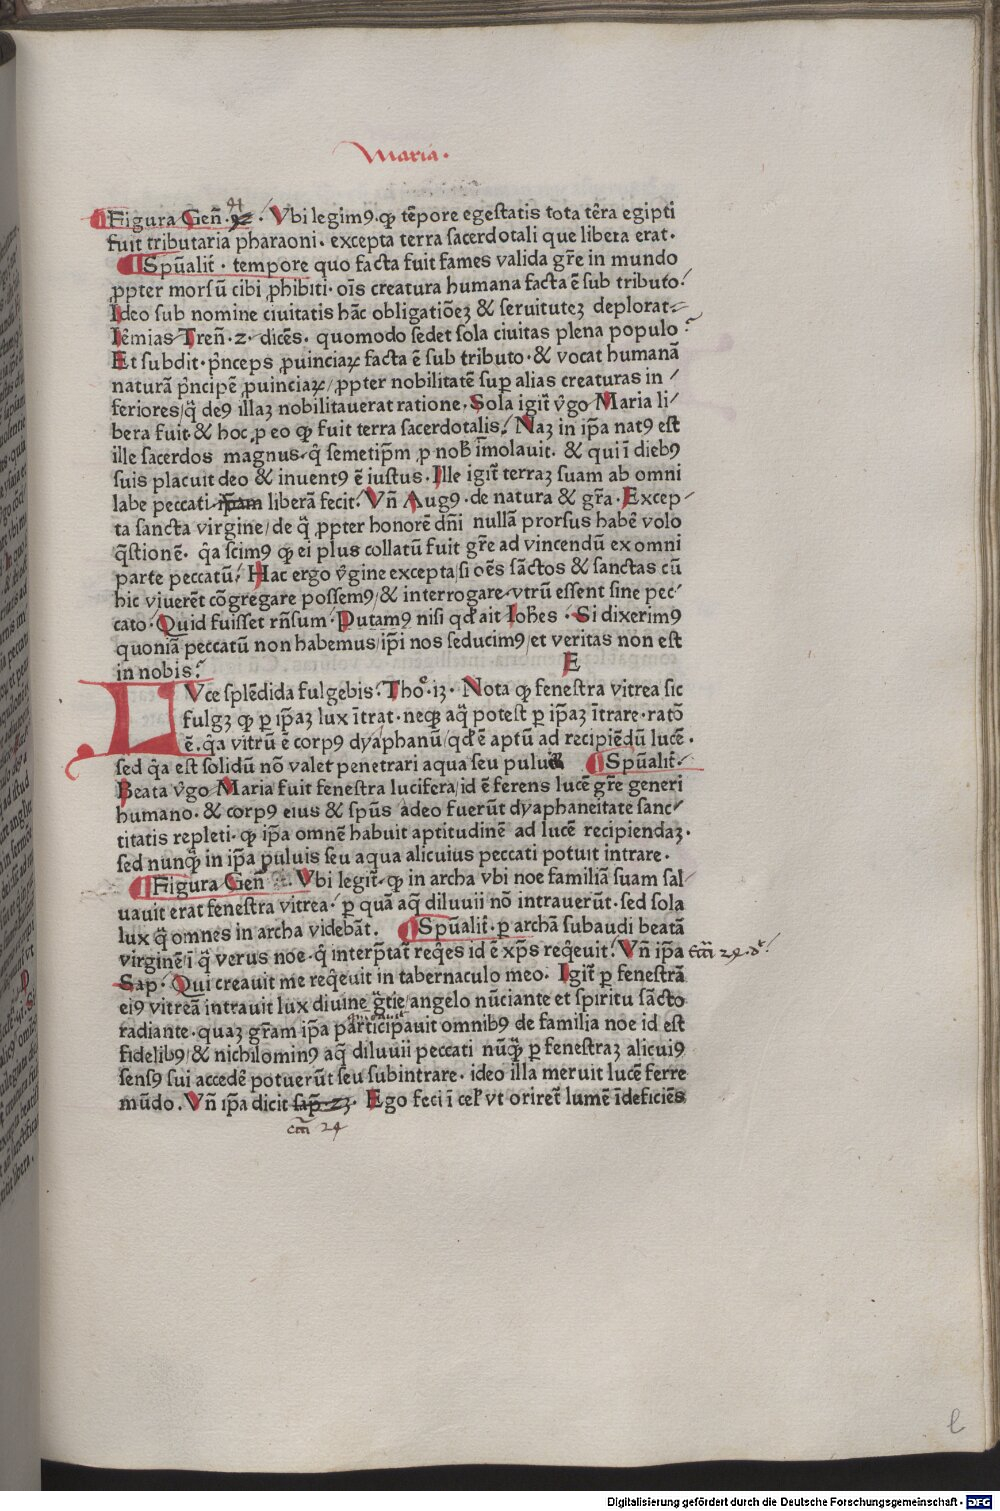 Maria.
Figura Geñ. 41. Vbi legim9. ꝙ tẽpore egestatis tota têra egipti
fuit tributaria pharaoni. excepta terra sacerdotali que libera erat.
Spũalit̃. tempore quo facta fuit fames valida gr̃e in mundo
ꝓpter morsũ cibi ꝓhibiti. oĩs creatura humana facta ẽ sub tributo.
Ideo sub nomine ciuitatis hãc obligatiõeꝫ & seruituteꝫ deplorat⸗
Iẽmias Treñ. z. dicẽs. quomodo sedet sola ciuitas plena populo?
Et subdit. p̃nceps ꝓuinciaꝝ facta ẽ sub tributo. & vocat humanã
naturã p̃ncipẽ ꝓuinciaꝝ/ ꝓpter nobilitatẽ suꝑ alias creaturas in/
feriores/ q̃ de9 illaꝫ nobilitauerat ratione. Sola igit̃ v̂go Maria li/
bera fuit. & hoc ꝓ eo ꝙ fuit terra sacerdotalis. Naꝫ in ip̃a nat9 est
ille sacerdos magnus. q̂ semetip̃m ꝓ nob̃ ĩmolauit. & qui ĩ dieb9
suis placuit deo & inuent9 ẽ iustus. Ille igit̃ terraꝫ suam ab omni
labe peccati ip̃am liberã fecit. Vñ Aug9. de natura & gr̃a. Excep/
ta sancta virgine/ de q̃ ꝓpter honorẽ dñi nullã prorsus habê volo
q̃stionẽ. q̂a scim9 ꝙ ei plus collatũ fuit gr̃e ad vincendũ ex omni
parte peccatũ. Hac ergo v̂gine excepta/ si oẽs sãctos & sanctas cũ
hic viuerẽt cõgregare possem9/ & interrogare vtrũ essent sine pec/
cato. Quid fuisset rñsum. Putam9 nisi qd̃ ait Ioh̃es. Si dixerim9
quoniã peccatũ non habemus/ ip̃i nos seducim9/ et veritas non est
in nobis.
E
LVce splẽdida fulgebis. Tho᷒. iꝫ. Nota ꝙ fenestra vitrea sic
fulgꝫ ꝙ ꝑ ip̃aꝫ lux ĩtrat. neqꝫ aq̃ potest ꝑ ip̃aꝫ ĩtrare. ratõ
ẽ. q̂a vitrũ ẽ corp9 dyaphanũ/ qd̃ ẽ aptũ ad recipiẽdũ lucẽ.
sed q̂a est solidũ nõ valet penetrari aqua seu puluis Spũalit̃.
Beata v̂go Maria fuit fenestra lucifera/ id ẽ ferens lucẽ gr̃e generi
humano. & corp9 eius & spũs adeo fuerũt dyaphaneitate sanc/
titatis repleti. ꝙ ip̃a omnẽ habuit aptitudinẽ ad lucẽ recipiendaꝫ.
sed nunq̃ in ip̃a puluis seu aqua alicuius peccati potuit intrare.
Figura Geñ . Vbi legit̃. ꝙ in archa vbi noe familiã suam sal/
uauit erat fenestra vitrea. ꝑ quã aq̃ diluuii nõ intrauerũt. sed sola
lux q̃ omnes in archa videbãt. Spũalit̃. ꝑ archã subaudi beatã
virginẽ ĩ q̃ verus noe. q̂ interp̃tat̃ req̂es id ẽ xp̃s req̂euit. Vñ ip̃a
Sap. Qui creauit me req̂euit in tabernaculo meo. Igit̃ ꝑ fenestrã
ei9 vitreã intrauit lux diuine gr̃tie/ angelo nũciante et spiritu sãcto
radiante. quaꝫ gr̃am ip̃a participauit omnib9 de familia noe id est
fidelib9/ & nichilomin9 aq̃ diluuii peccati nũq̃ ꝑ fenestraꝫ alicui9
sens9 sui accedê potuerũt seu subintrare. ideo illa meruit lucẽ ferre
mũdo. Vñ ip̃a dicit sap̃. zꝫ. Ego feci ĩ cel̃ vt oriret̃ lumẽ ĩdeficiẽs
24
Digitalisierung gefördert durch die Deutsche Forschungsgemeinschaft - DFG